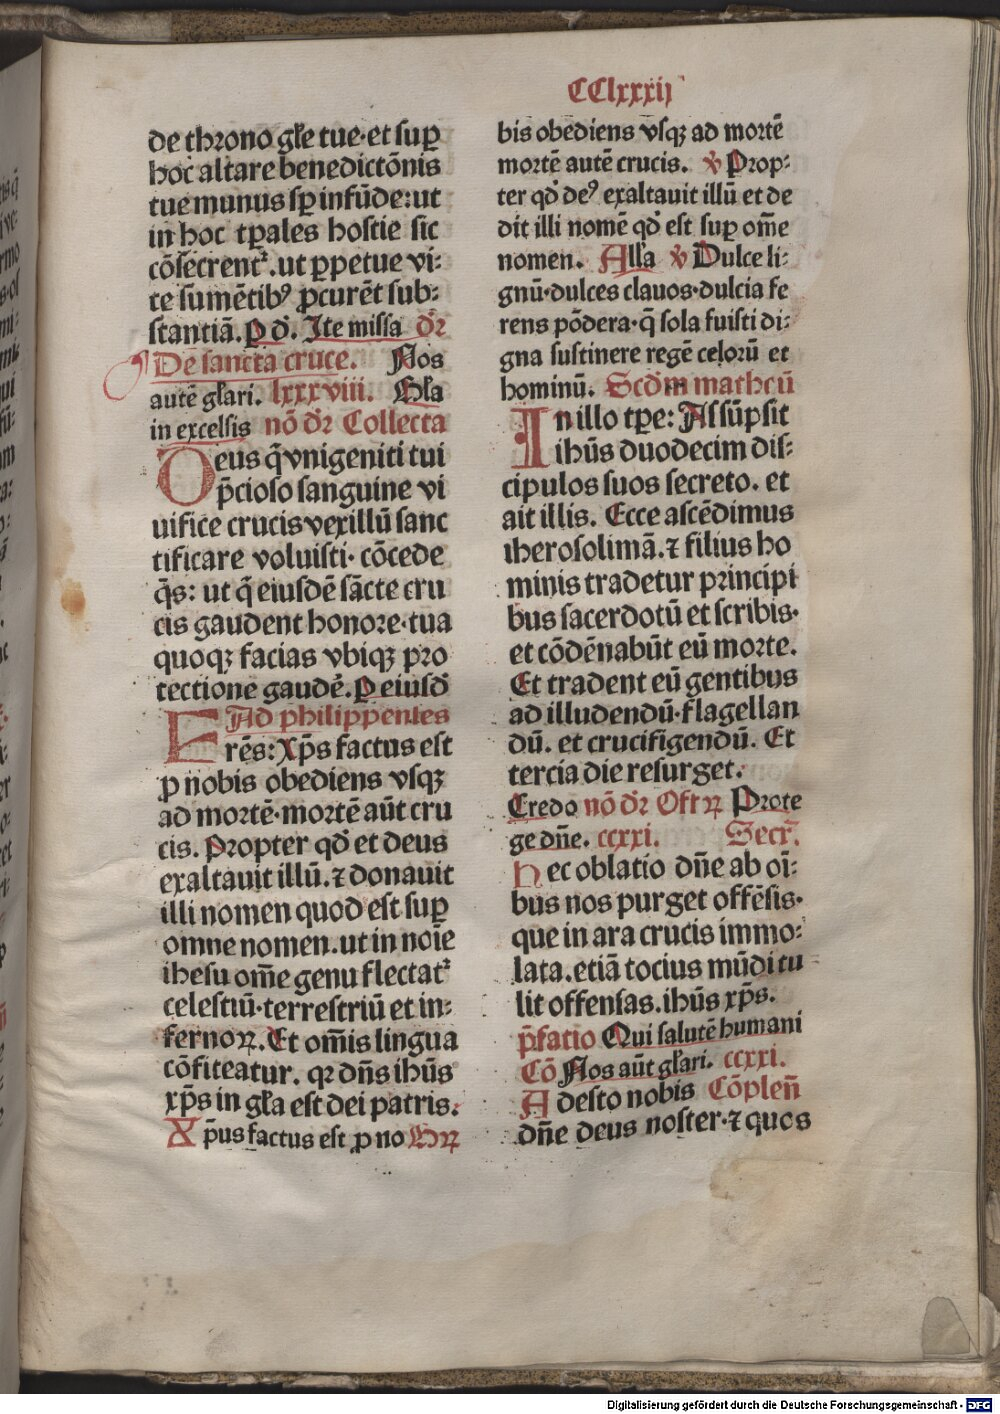 CClxxxij
de throno gl̄e tue·et sup̱
hoc altare benedictōnis
tue munus sp̱ infūde: ut
in hoc tp̱ales hostie sic
cōsecrent᷑.ut p̱petue vi⸗
te sumētib⁹ ꝓcurēt sub⸗
stantiā. P d̄. Ite missa dr̄
De sancta cruce. Nos
autē gl̄ari. lxxxviii. Gl̄a
in excelsis nō dr̄ Collecta
Deus q̄ vnigeniti tui
p̄cioso sanguine vi
uifice crucis vexillū sanc
tificare voluisti· cōcede
q̄s: ut q̄ eiusdē sācte cru
cis gaudent honore·tua
quoqꝫ facias vbiqꝫ pro
tectione gaudē. P eiusd̄
Ad philippenses
Frēs: Xp̄s factus est
ꝓ nobis obediens vsqꝫ
ad mortē·mortē aūt cru
cis. Propter qd̄ et deus
exaltauit illū.⁊ donauit
illi nomen quod est sup̱
omne nomen.ut in noīe
ihesu om̄e genu flectat᷑
celestiū·terrestriū et in⸗
fernoꝝ. Et om̄is lingua
cōfiteatur. qꝛ dn̄s ihūs
xp̄s in gl̄a est dei patris.
Xp̄us factus est ꝓ no Gꝝ
bis obediens vsqꝫ ad mortē
mortē autē crucis. v̄ Prop⸗
ter qd̄ de⁹ exaltauit illū et de
dit illi nomē qd̄ est sup̱ om̄e
nomen. All̄a v̄ Dulce li⸗
gnū·dulces clauos·dulcia fe
rens pōdera·q̄ sola fuisti di⸗
gna sustinere regē celorū et
hominū. Scd̄m matheū
In illo tp̱e: Assūpsit
ihūs duodecim dis⸗
cipulos suos secreto. et
ait illis. Ecce ascēdimus
iherosolimā.⁊ filius ho
minis tradetur principi
bus sacerdotū et scribis·
et cōdēnabūt eū morte.
Et tradent eū gentibus
ad illudendū·flagellan
dū. et crucifigendū. Et
tercia die resurget.
Credo nō dr̄ Offꝝ Prote
ge dn̄e. ccxxi. Secr̄.
Hec oblatio dn̄e ab oī⸗
bus nos purget offēsis·
que in ara crucis immo⸗
lata.etiā tocius mūdi tu
lit offensas.ihūs xp̄s.
p̄fatio Qui salutē humani
Cō Nos aūt gl̄ari. ccxxi.
Adesto nobis Cōplen̄
dn̄e deus noster·⁊ quos
Digitalisierung gefördert durch die Deutsche Forschungsgemeinschaft - DFG